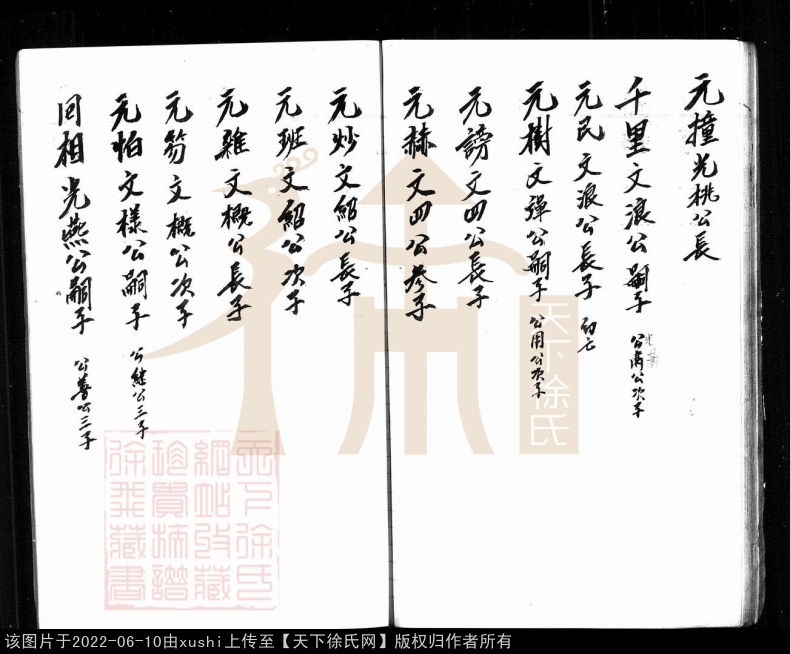 元撞光桃公長
千里文浪公嗣子 公甫公次子
元民文浪公長子 幼亡
元樹文彈公嗣子 公用公次子
元謗文四公長子
元赫文四公叁子
元炒文紹公長子
元班文紹公次子
元雞文概公長子
元笏文概公次子
元怕文樣公嗣子 公継公三子
回相光燕公嗣子 公善公三子
天下徐氏
天下徐氏
網站收藏
珍貴族譜
徐飛藏書
该图片于2022-06-10由xushi上传至【天下徐氏网】版权归作者所有